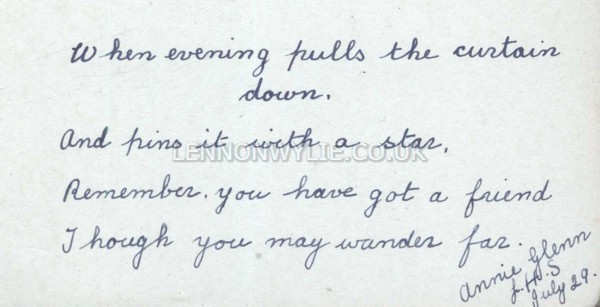 When evening pulls the curtain
down.
And pins it with a star,
LENNONWYLIE.CO.UK
Remember. you have got a friend
Though you may wander far.
Annie Glenn
July 29.